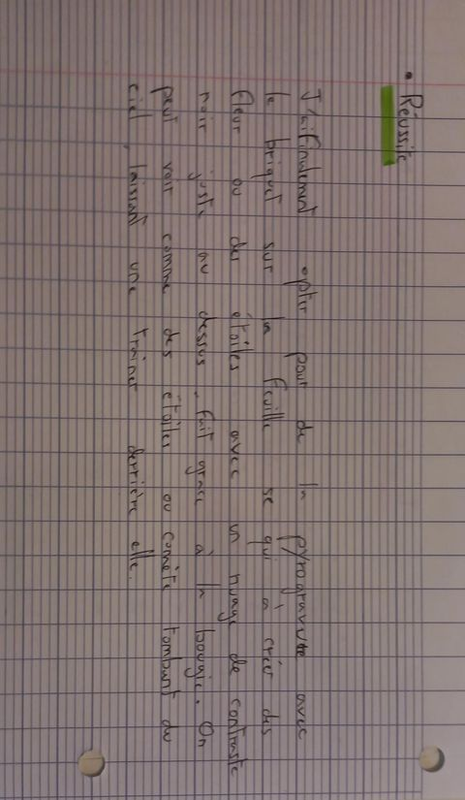 • Réussite
J'ai finalement opter pour de la pyrogravure avec
le briquet sur la feuille se qui à créer des
fleur ou des étoiles avec un nuage de contraste
noir juste au dessus, fait grace à la bougie. On
peut voir comme des étoiles ou comète tombant du
ciel, laissant une trainer derrière elle.